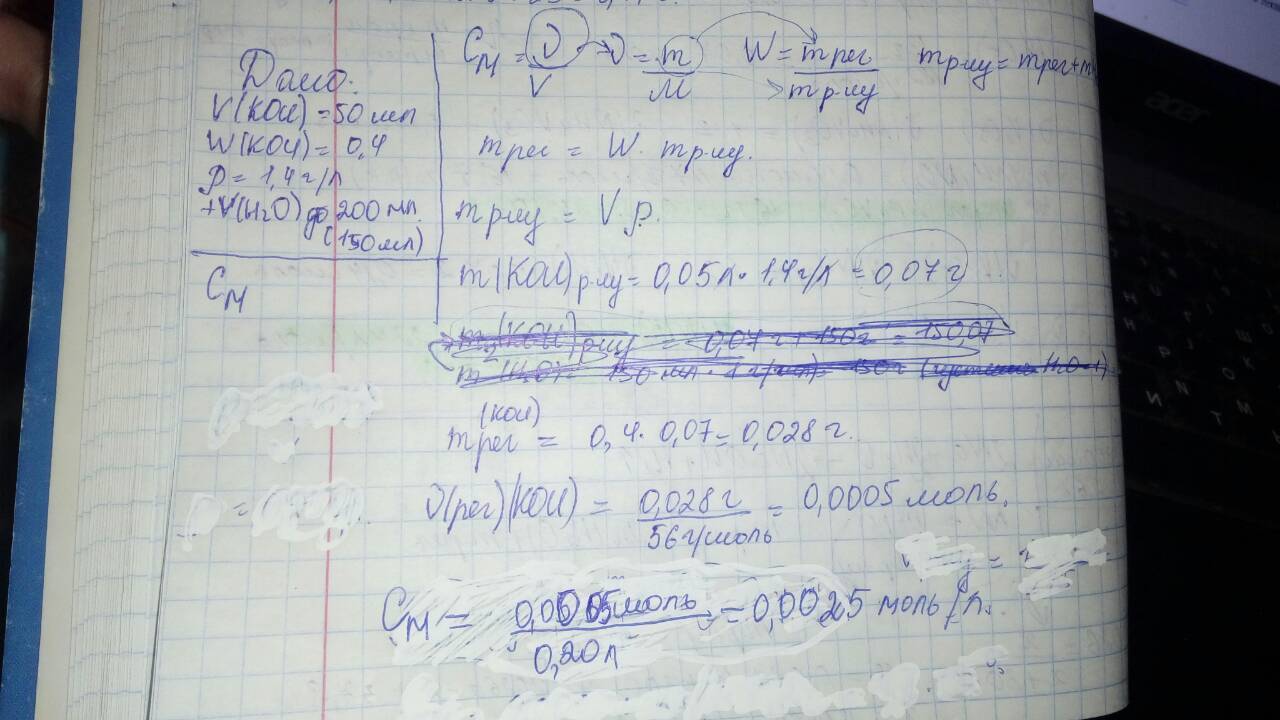 Дано:
V(KOH) = 50 мл
W(KOH) = 0,4
ρ = 1,4 г/л
+V(H₂O) до 200 мл.
(150мл)
Cм
Cм = ν/V → ν = m/M W = mрег/mр-му mр-му = mрег+m
mрег = W · mр-му.
mр-му = V·ρ.
m(KOH)р-му = 0,05л · 1,4г/л = 0,07 г
m(KOH)р-му = 0,07 г + 150г = 150,07
m(H₂O) = 150 мл · 1 г/мл = 150г
(KOH)
mрег = 0,4 · 0,07 = 0,028 г.
ν(рег)(KOH) = 0,028 г / 56 г/моль = 0,0005 моль.
Cм = 0,0005моль / 0,20л = 0,0025 моль/л.
acer